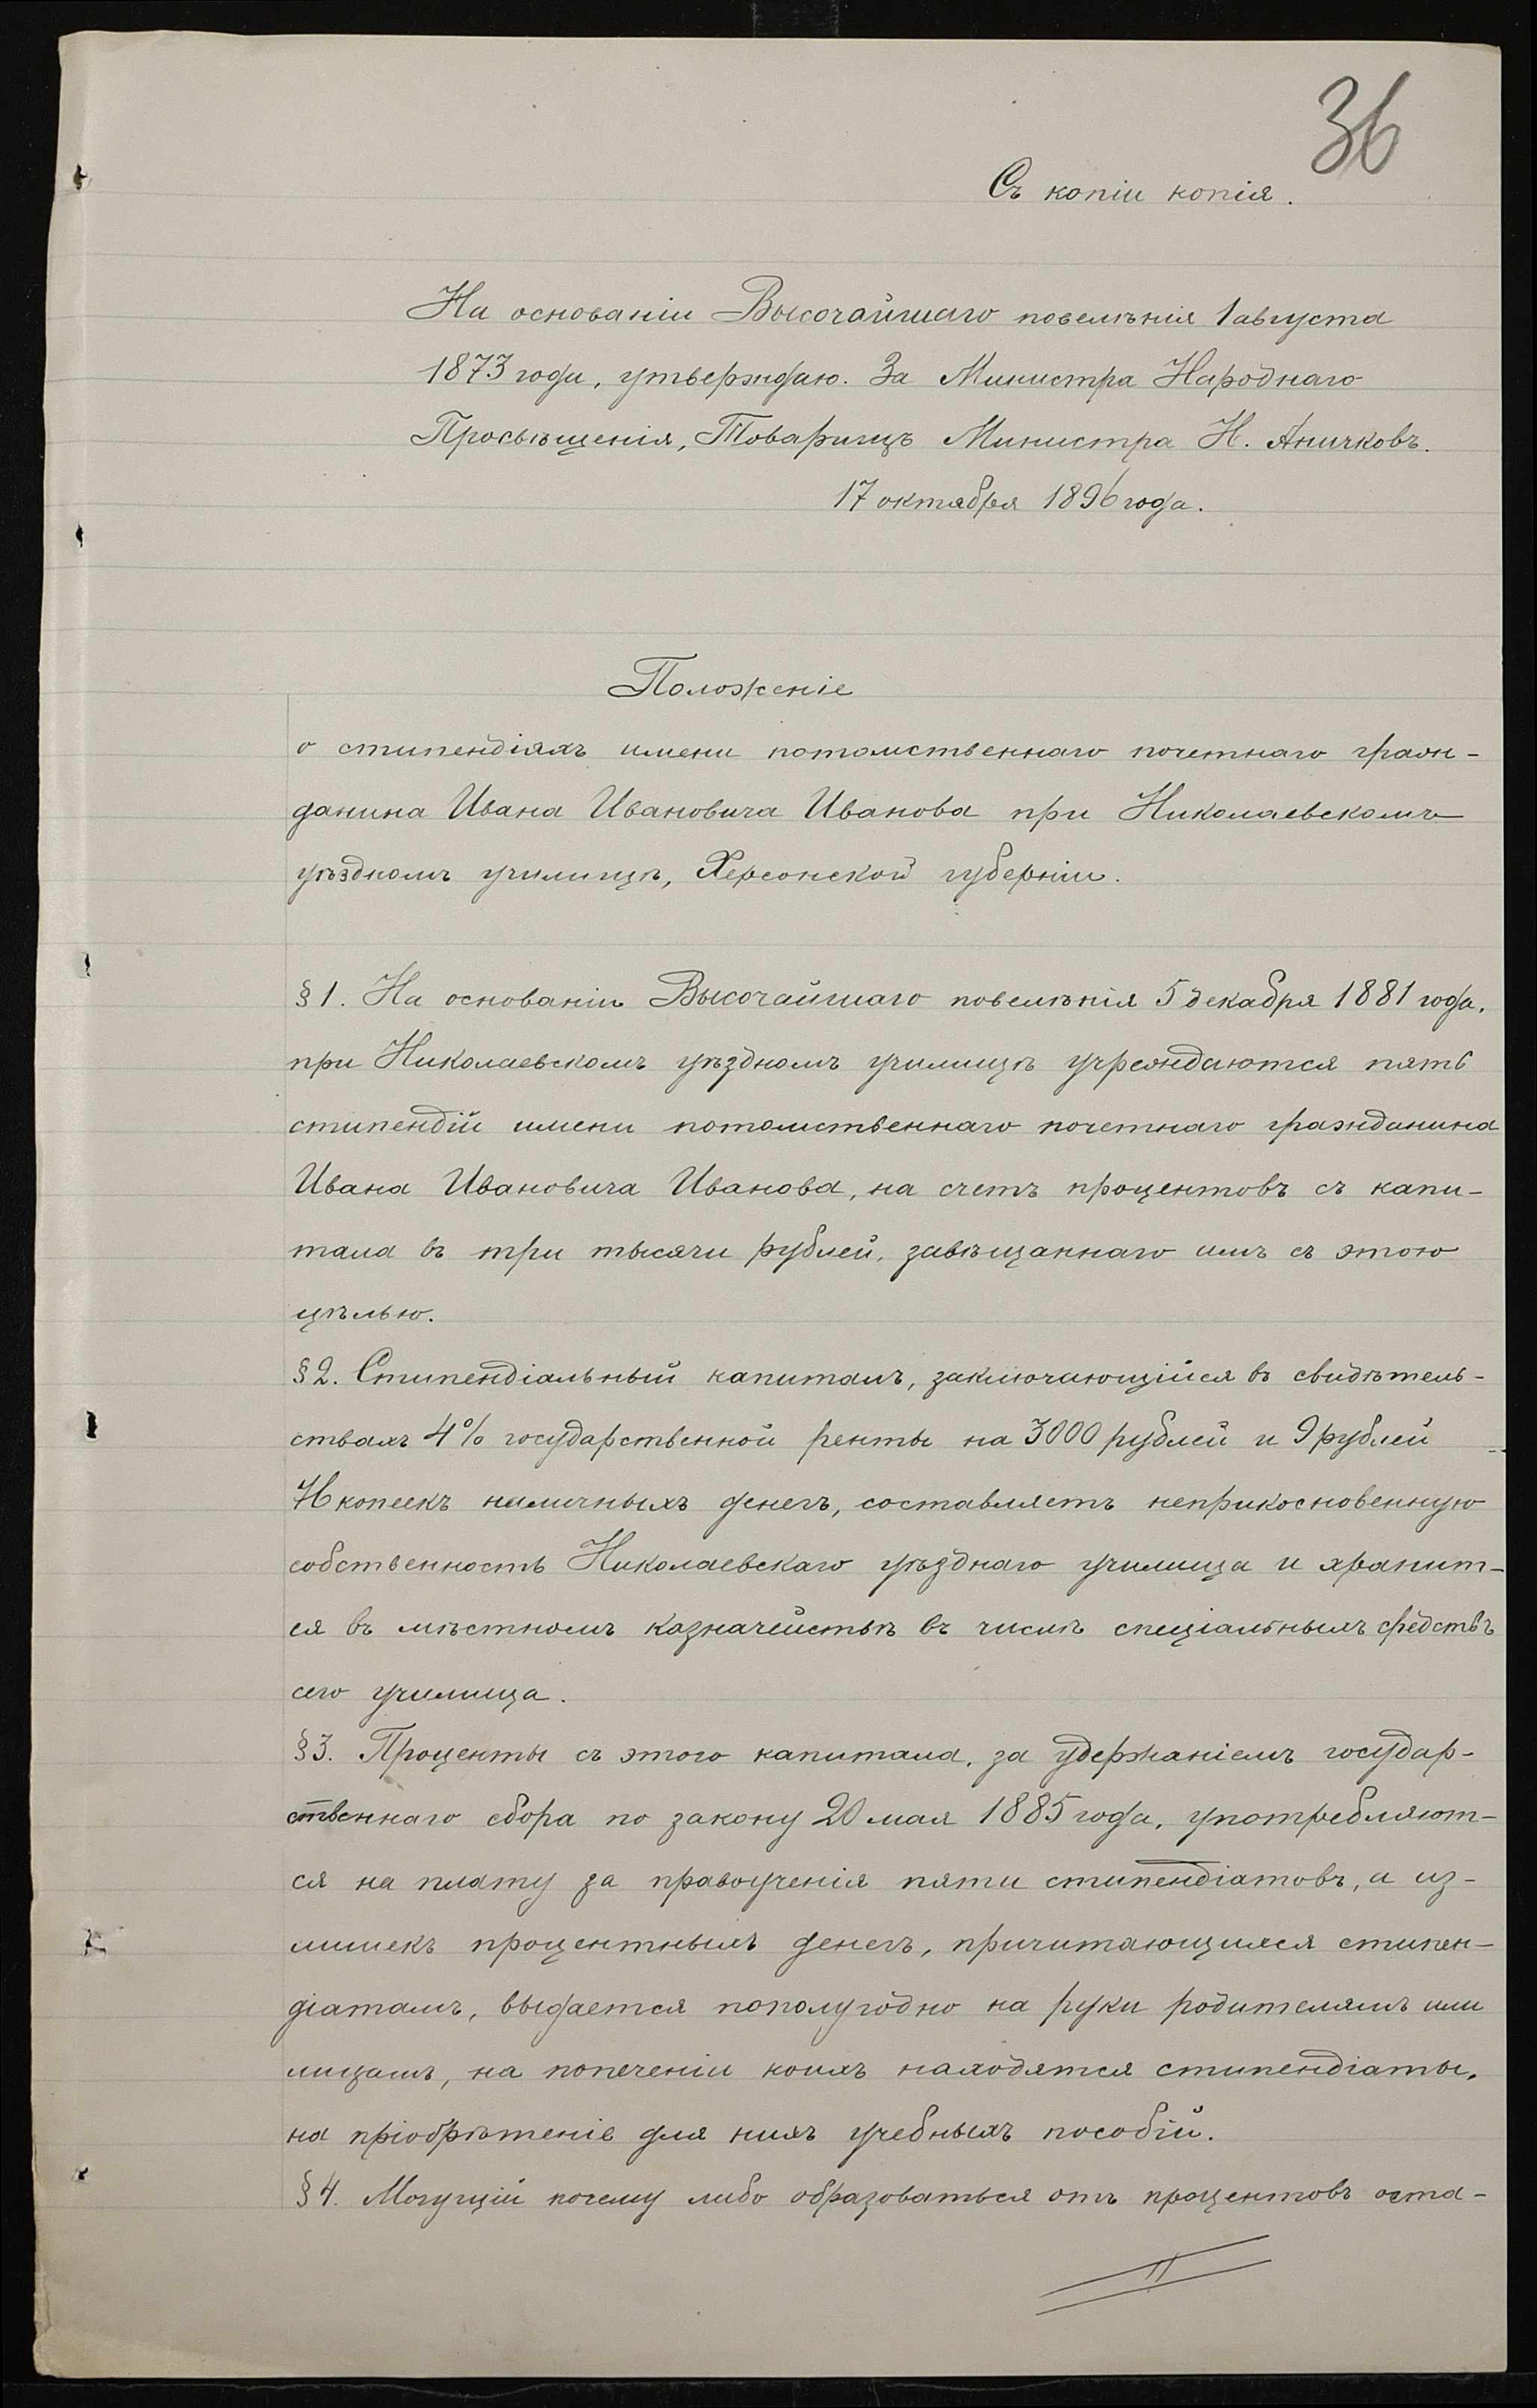 36
Съ копіи копія.
На основаніи Высочайшаго повелѣнія 1 августа
1873 года, утверждаю. За Министра Народнаго
Просвѣщенія, Товарищъ Министра Н. Аничковъ.
17 октября 1896 года.
Положеніе
о стипендіяхъ имени потомственнаго почетнаго граж-
данина Ивана Ивановича Иванова при Николаевскомъ
уѣздномъ училищѣ, Херсонской губерніи.
§ 1. На основаніи Высочайшаго повелѣнія 5 декабря 1881 года,
при Николаевскомъ уѣздномъ училищѣ учреждаются пять
стипендій имени потомственнаго почетнаго гражданина
Ивана Ивановича Иванова, на счетъ процентовъ съ капи-
тала въ три тысячи рублей, завѣщаннаго имъ съ этою
цѣлью.
§ 2. Стипендіальный капиталъ, заключающійся въ свидѣтель-
ствахъ 4% государственной ренты на 3000 рублей и 9 рублей
копеекъ наличныхъ денегъ, составляетъ неприкосновенную
собственность Николаевскаго уѣзднаго училища и хранит-
ся въ мѣстномъ казначействѣ въ числѣ спеціальныхъ средствъ
сего училища.
§ 3. Проценты съ этого капитала, за удержаніемъ государ-
ственнаго сбора по закону 20 мая 1885 года, употребляют-
ся на плату за правоученія пяти стипендіатовъ, а из-
лишекъ процентныхъ денегъ, причитающихся стипен-
діатамъ, выдается пополугодно на руки родителямъ или
лицамъ, на попеченіи коихъ находятся стипендіаты,
на пріобрѣтеніе для нихъ учебныхъ пособій.
§ 4. Могущій почему либо образоваться отъ процентовъ оста-